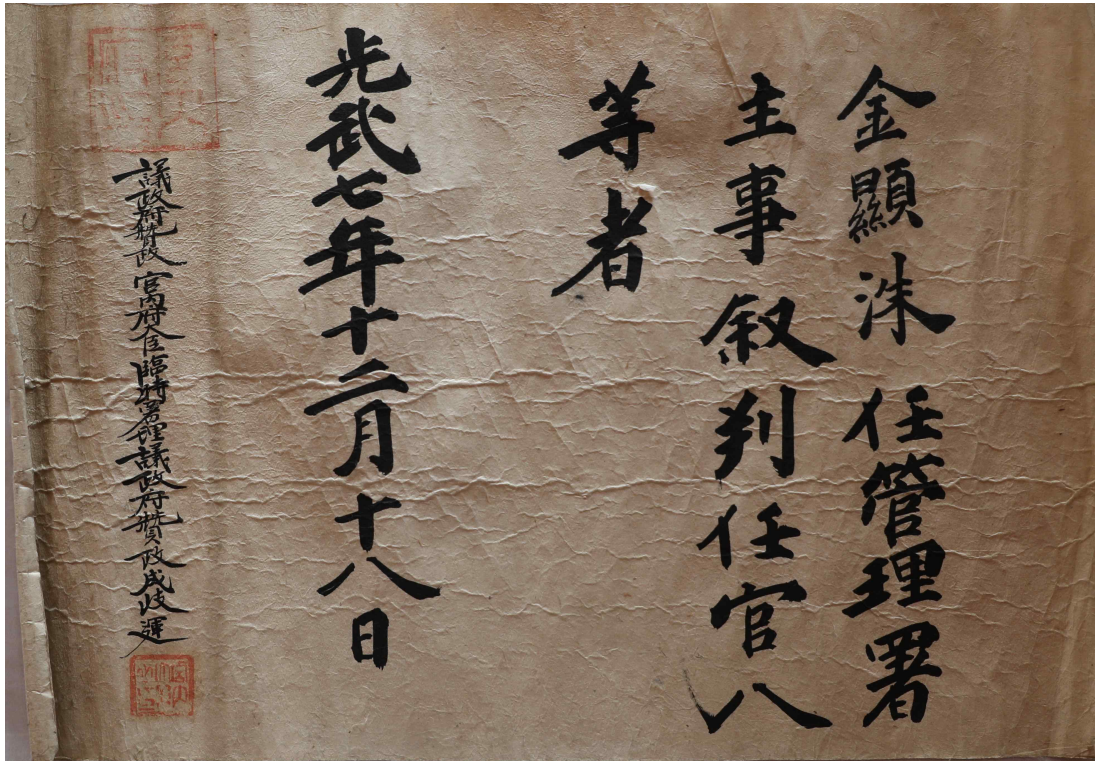 金顯洙 任管理署
主事敍判任官八
等者
光武七年十二月十八日
議政府贊政宮內府大臣臨時署理議政府贊政成岐運